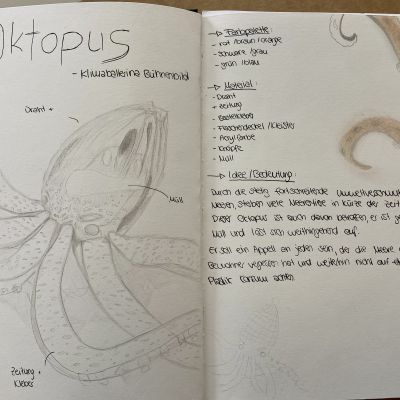 Oktopus
- Klimaballerina Bühnenbild
Draht +
Müll
Zeitung +
Kleber
→ Farbpalette:
- rot/braun/orange
- schwarz/grau
- grün/blau
→ Material:
- Draht
+ Zeitung
- Bastelkleber
- Flaschendeckel/Kleister
- Acrylfarbe
- Knöpfe
- Müll
→ Idee/Bedeutung:
Durch die stetig fortschreitende Umweltverschmut
Meeren, sterben viele Meerestiere in Kürze der Zeit
Dieser Oktopus ist auch davon betroffen, er ist ge
Müll und löst sich weitgehend auf.
Er soll ein Appell an jeden sein, der die Meere
Bewohner vergessen hat und weiterhin nicht auf
Plastik Konsum achten